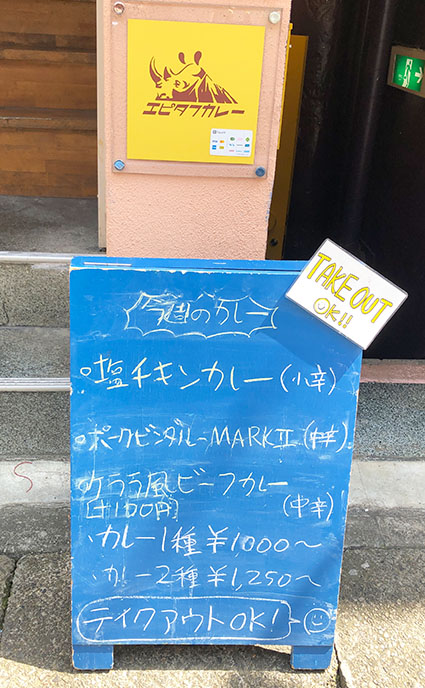 エピタフカレー
TAKE OUT
OK!!
今週のカレー
塩チキンカレー(小辛)
ポークビンダルーMARKⅡ(中辛)
ケララ風ビーフカレー
(+100円) (中辛)
・カレー1種 ¥1000～
・カレー2種 ¥1,250～
テイクアウトOK!